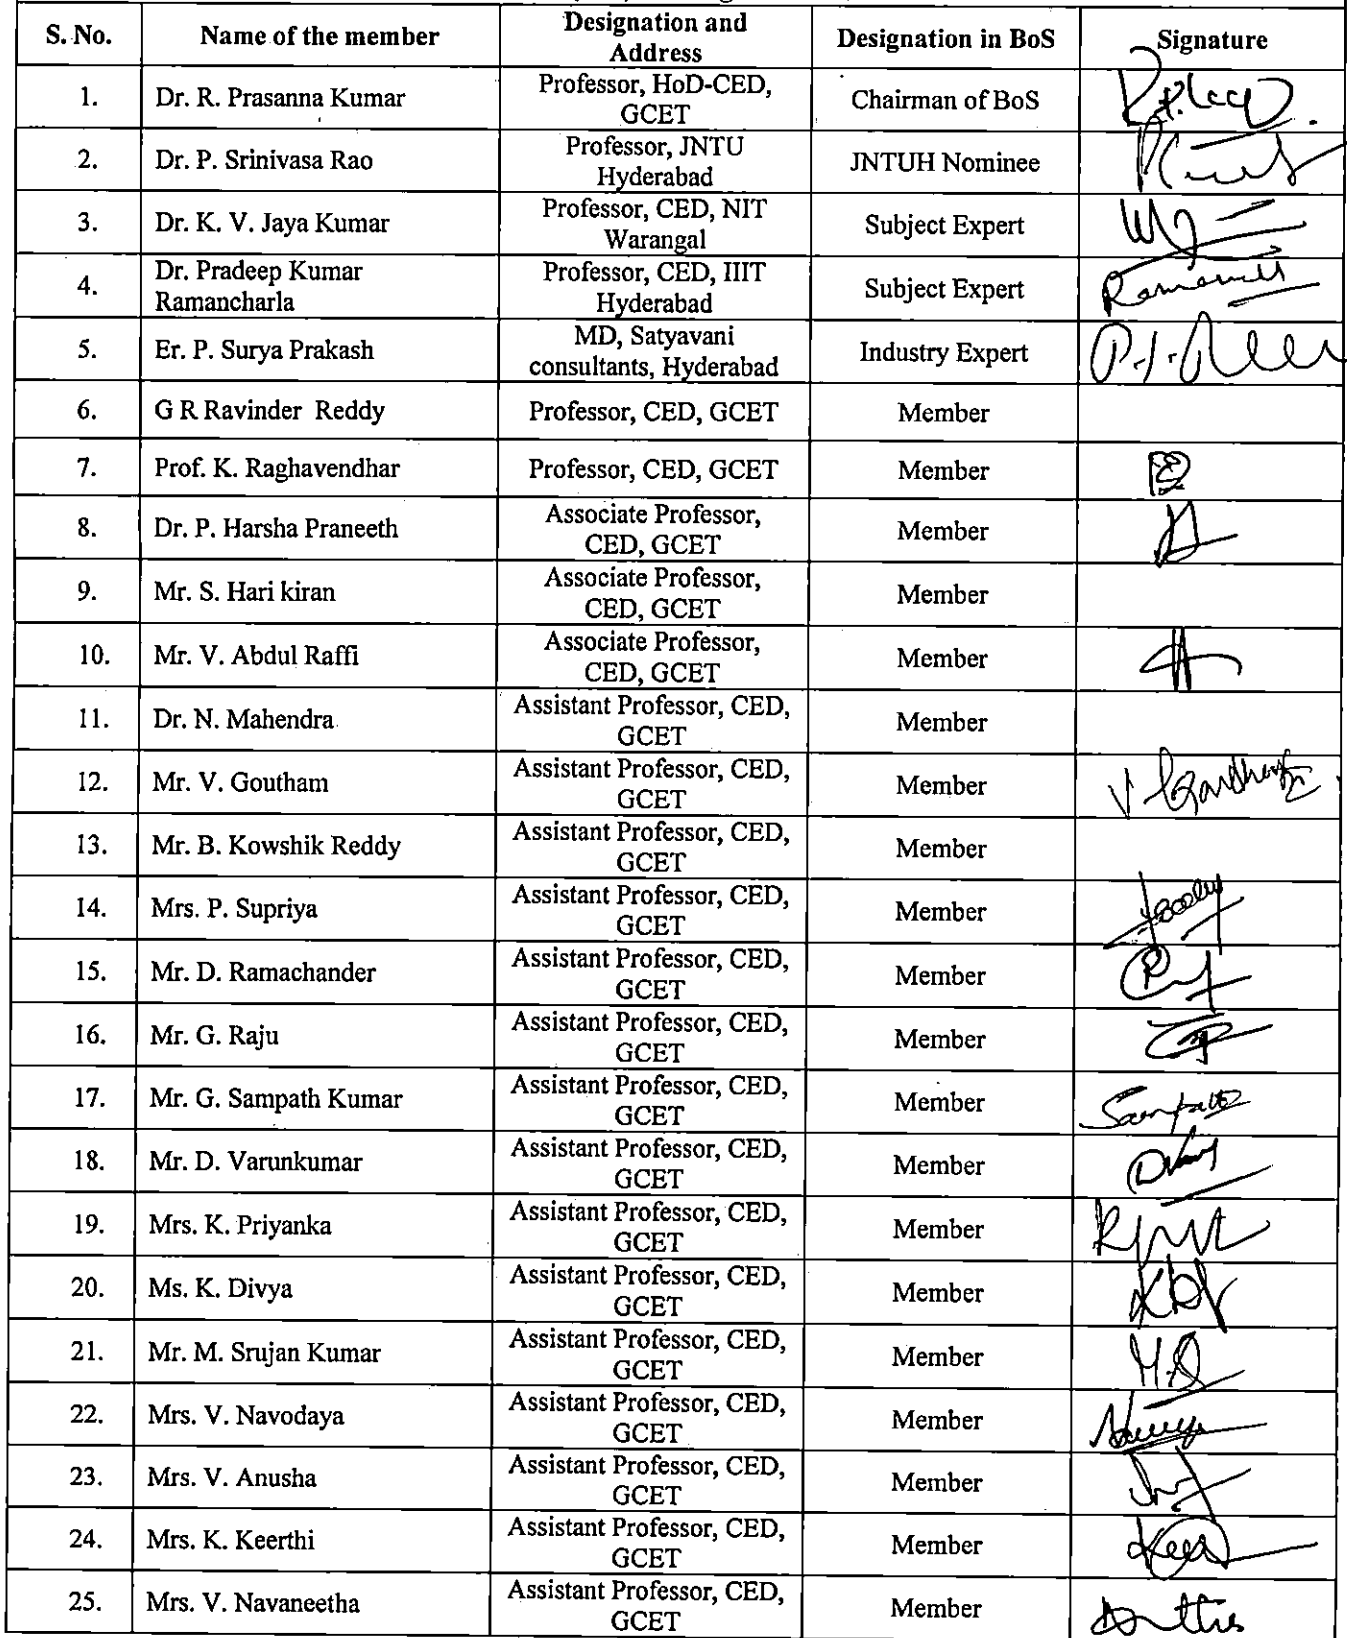 S. No. Name of the member Designation and Address Designation in BoS Signature
1. Dr. R. Prasanna Kumar Professor, HoD-CED, GCET Chairman of BoS
2. Dr. P. Srinivasa Rao Professor, JNTU Hyderabad JNTUH Nominee
3. Dr. K. V. Jaya Kumar Professor, CED, NIT Warangal Subject Expert
4. Dr. Pradeep Kumar Ramancharla Professor, CED, IIIT Hyderabad Subject Expert
5. Er. P. Surya Prakash MD, Satyavani consultants, Hyderabad Industry Expert
6. G R Ravinder Reddy Professor, CED, GCET Member
7. Prof. K. Raghavendhar Professor, CED, GCET Member
8. Dr. P. Harsha Praneeth Associate Professor, CED, GCET Member
9. Mr. S. Hari kiran Associate Professor, CED, GCET Member
10. Mr. V. Abdul Raffi Associate Professor, CED, GCET Member
11. Dr. N. Mahendra Assistant Professor, CED, GCET Member
12. Mr. V. Goutham Assistant Professor, CED, GCET Member
13. Mr. B. Kowshik Reddy Assistant Professor, CED, GCET Member
14. Mrs. P. Supriya Assistant Professor, CED, GCET Member
15. Mr. D. Ramachander Assistant Professor, CED, GCET Member
16. Mr. G. Raju Assistant Professor, CED, GCET Member
17. Mr. G. Sampath Kumar Assistant Professor, CED, GCET Member
18. Mr. D. Varunkumar Assistant Professor, CED, GCET Member
19. Mrs. K. Priyanka Assistant Professor, CED, GCET Member
20. Ms. K. Divya Assistant Professor, CED, GCET Member
21. Mr. M. Srujan Kumar Assistant Professor, CED, GCET Member
22. Mrs. V. Navodaya Assistant Professor, CED, GCET Member
23. Mrs. V. Anusha Assistant Professor, CED, GCET Member
24. Mrs. K. Keerthi Assistant Professor, CED, GCET Member
25. Mrs. V. Navaneetha Assistant Professor, CED, GCET Member